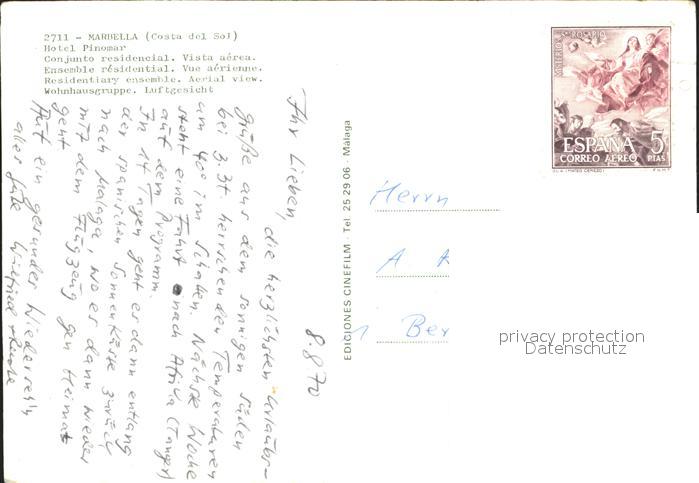 2711 - MARBELLA (Costa del Sol)
Hotel Pinomar
Conjunto residencial. Vista aérea.
Ensemble résidential. Vue aérienne.
Residentiary ensemble. Aerial view.
Wohnhausgruppe. Luftgesicht
8.8.70
Ihr Lieben,
die herzlichsten Urlaubs-
grüße aus dem sonnigen Süden
bei z.Zt. herrschenden Temperaturen
um 40° im Schatten. Nächste Woche
steht eine Fahrt nach Afrika (Tanger)
auf dem Programm.
In 14 Tagen geht es dann entlang
der spanischen Sonnenküste zurück
nach Malaga, wo es dann wieder
mit dem Flugzeug gen Heimat
geht
Auf ein gesundes Wiederseh'n
alles Gute Wilfried
EDICIONES CINEFILM - Tel 25 29 06 - Málaga
MISTERIOS Sto ROSARIO
ESPAÑA 5
CORREO AEREO PTAS
(MATEO CEREZO) F.N.M.T.
Herrn
A
Ber
privacy protection
Datenschutz